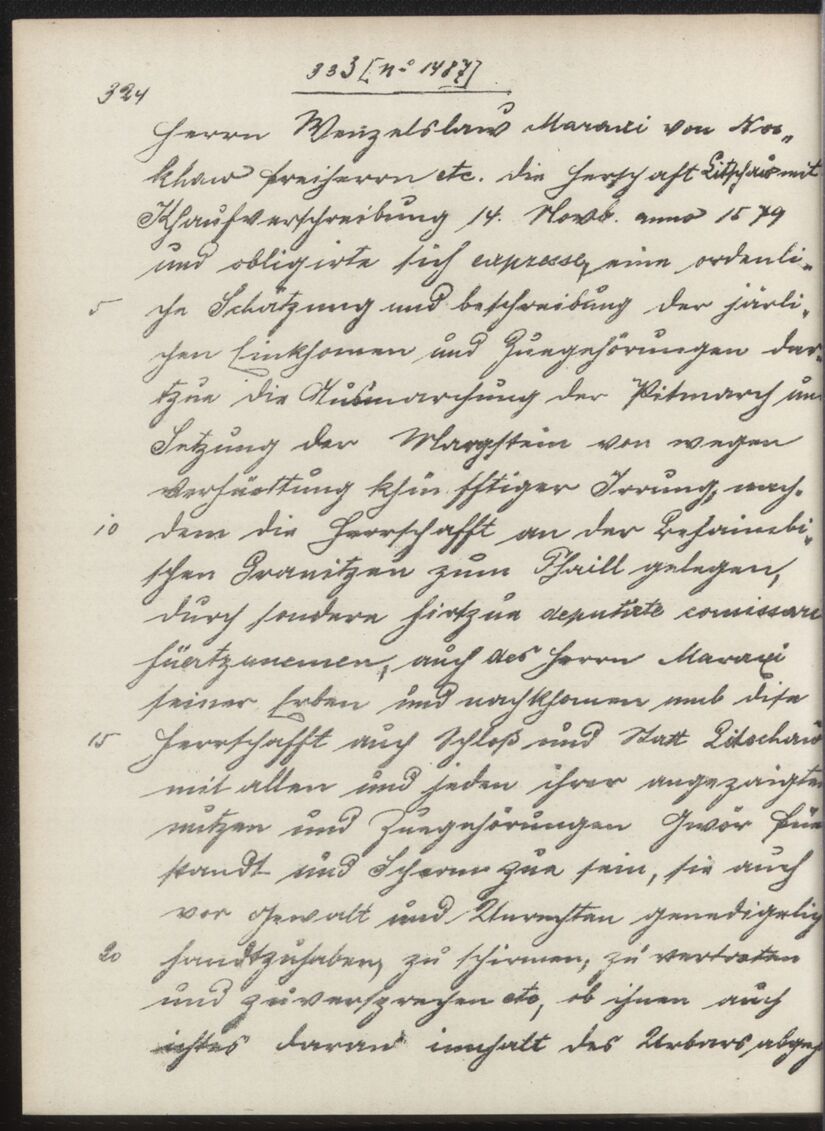 333 [n° 1487]
324
Herrn Wenzelslaw Maraxi von Nos„
khaw freiherrn etc. die herschaft Litschau mit
Khaufverschreibung 14. Novb. anno 1579
und obligirte sich expresse, eine ordenli„
5 che Schätzung und beschreibung der järli„
chen Einkhomen und Zuegehörungen dar„
tzue die Ausmarchung der Pitmarch un
Setzung der Margstein von wegen
verhüettung khünfftiger Irrung, nach„
10 dem die Herrschafft an der behaimbi„
schen Granitzen zum Thaill gelegen,
durch sondere hirtzue deputirte comissari
füertzunemen, auch des Herrn Maraxi
seiner Erben und nachkhomen umb dise
15 Herrschafft auch Schloß und Statt Litschau
mit allen und jeden ihrer angezaigten
nutzen und Zuegehörungen Gwör für
standt und Scherm zue sein, sie auch
vor Gewalt und Unrechten genedigelich
20 handtzuhaben, zu schirmen, zu vertreten
und zuversprechen etc, ob ihnen auch
ichtes daran innhalt des Urbars abge